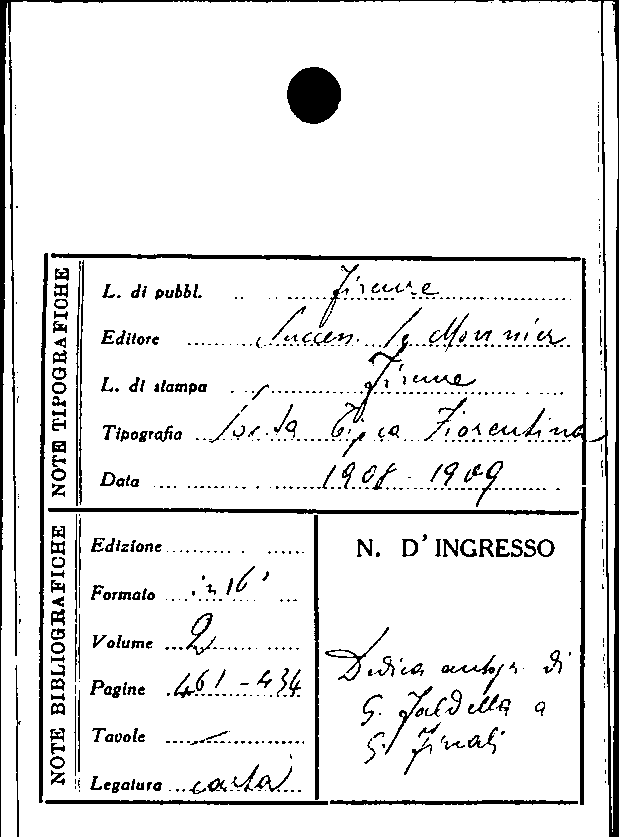 NOTE TIPOGRAFICHE
L. di pubbl. Firenze
Editore Succen. Le Monnier
L. di stampa Firenze
Tipografia Soc.tà Tip.ca Fiorentina
Data 1908 - 1909
NOTE BIBLIOGRAFICHE
Edizione
Formato in 16°
Volume 2
Pagine 461 - 434
Tavole /
Legatura carta
N. D'INGRESSO
Dedica autogr. di
G. Faldella a
G. Finali